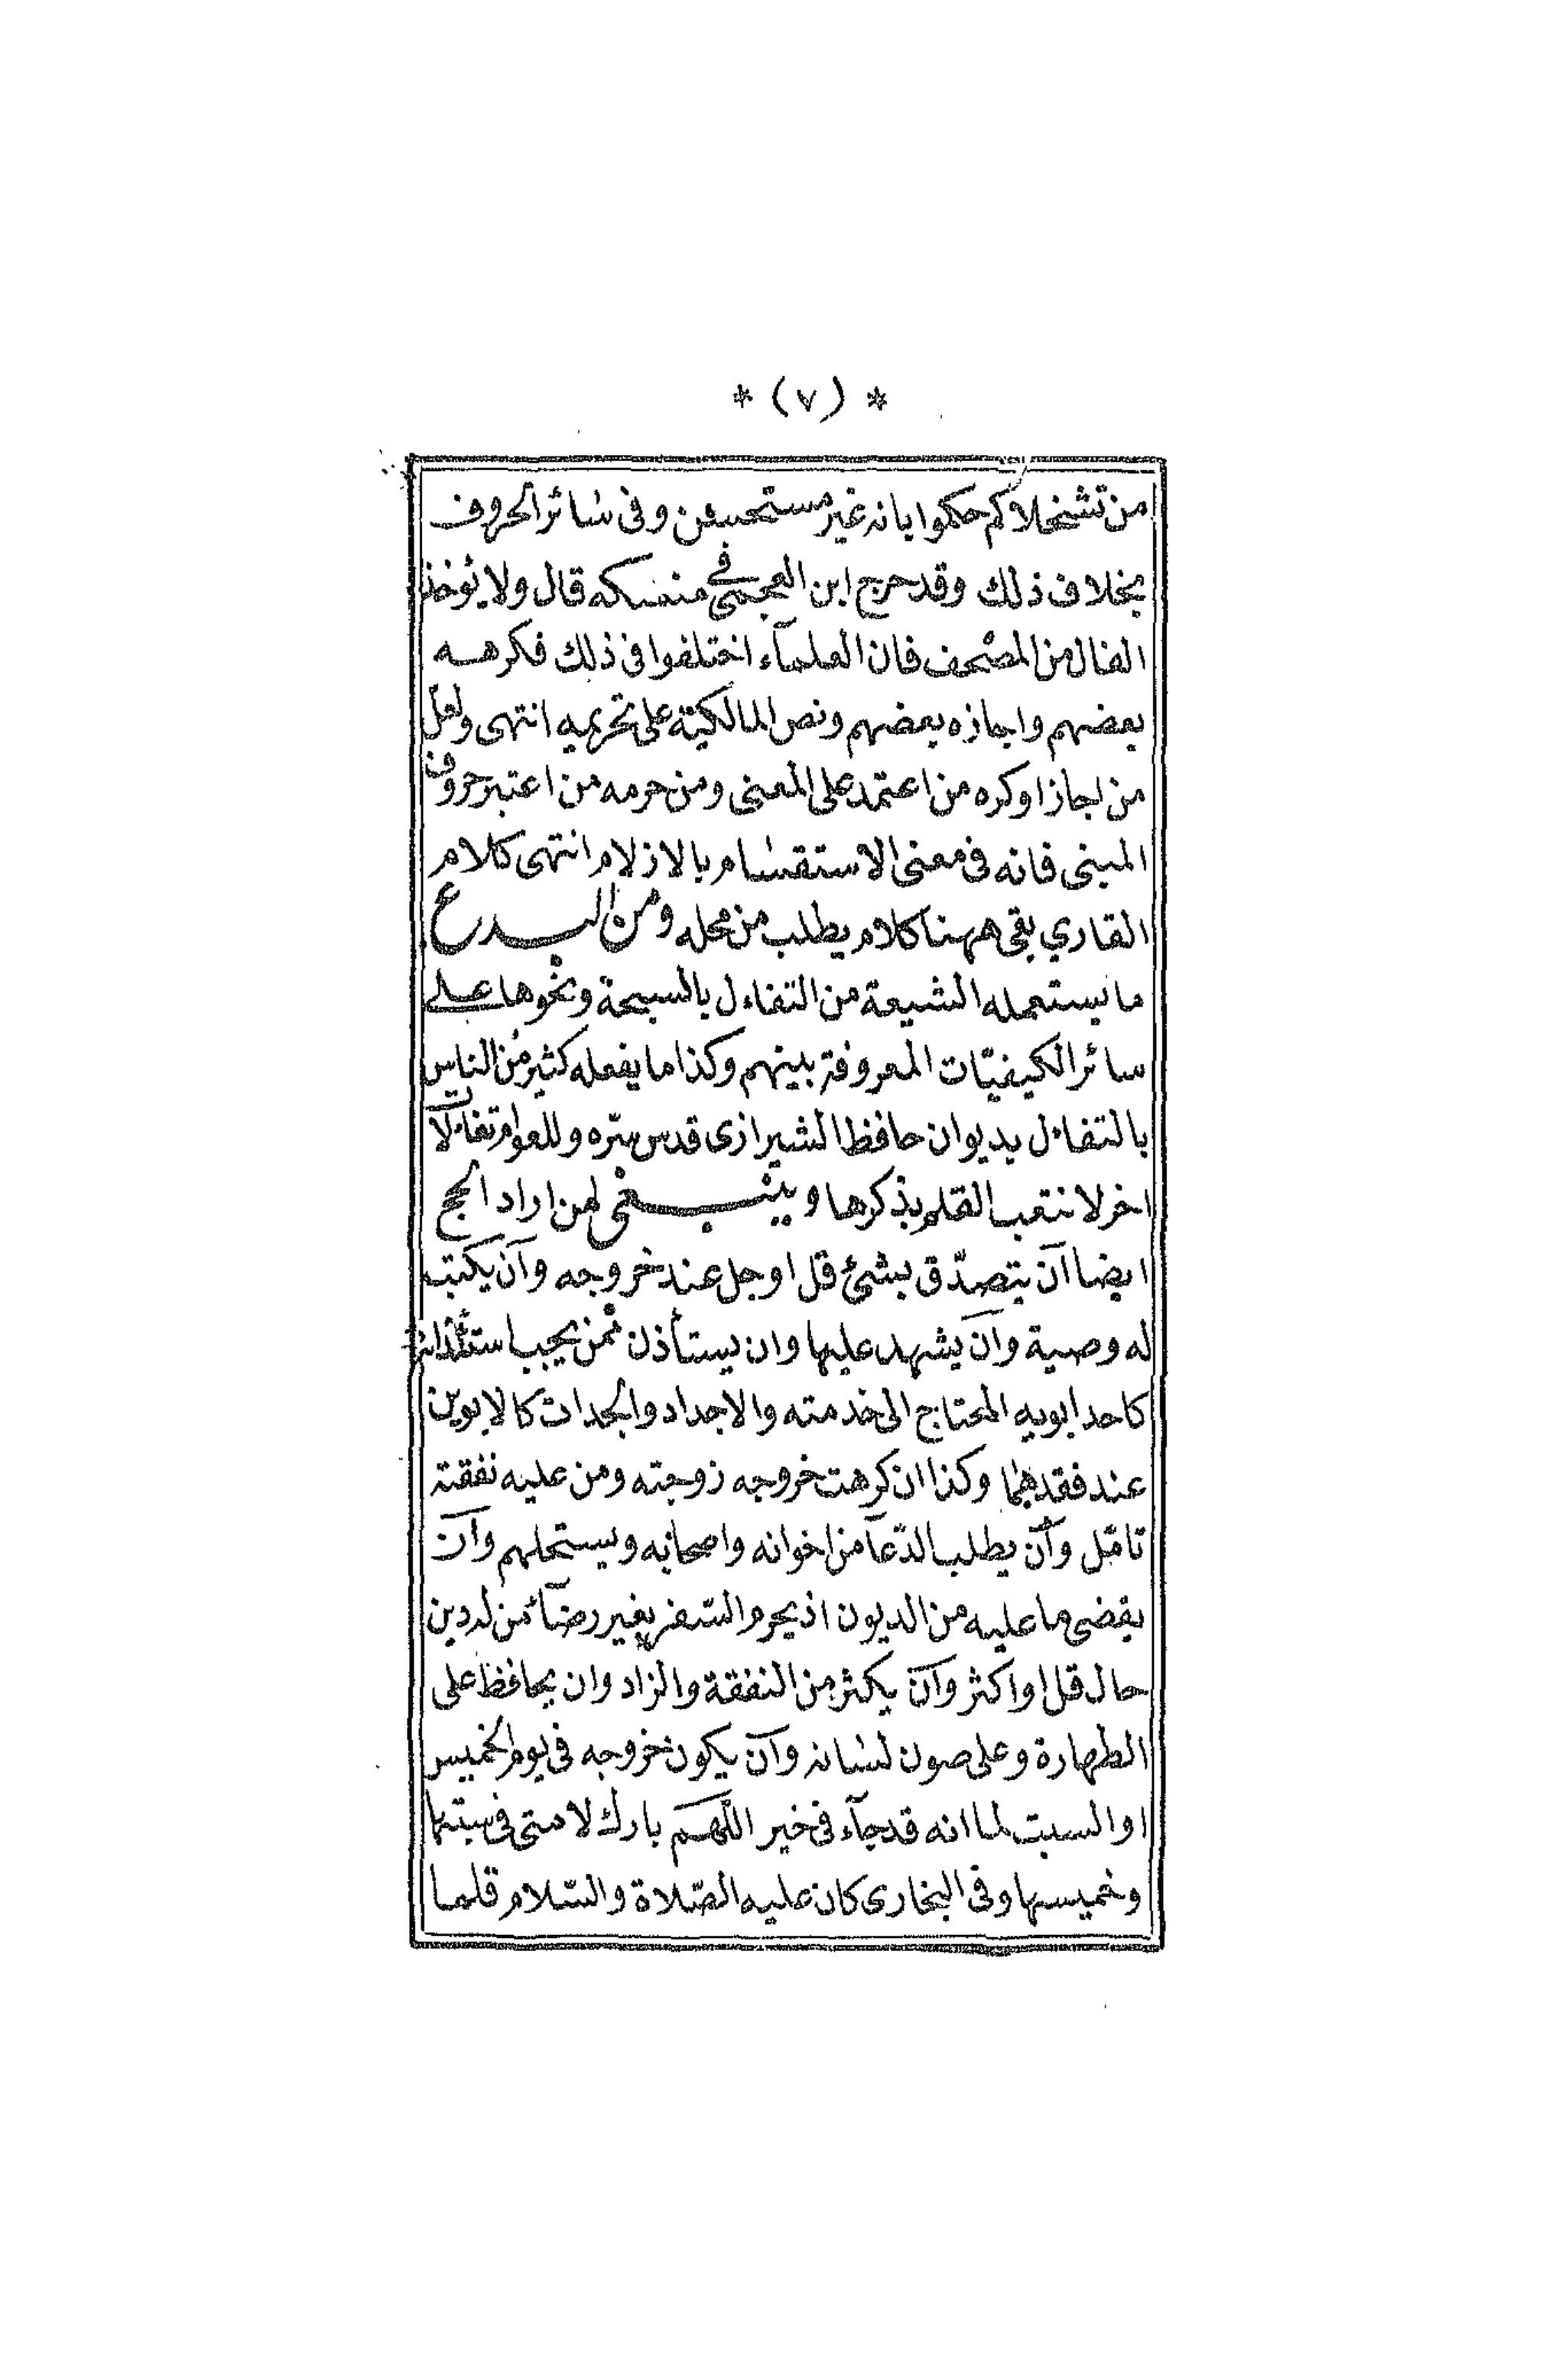 * (٧) *
من تشخلاكم حكموا بانه غير مستحسن وفى سائر الحروف
بخلاف ذلك وقد صرح ابن العجمى فى منسكه قال ولا يؤخذ
الفال من المصحف فان العلمآء اختلفوا فى ذلك فكرهه
بعضهم واجازه بعضهم ونص المالكية على تحريمه انتهى ولعل
من اجاز اوكره من اعتمد على المعنى ومن حرمه من اعتبر حروف
المبنى فانه فى معنى الاستقسام بالازلام انتهى كلام
القاري بقى ههنا كلام يطلب من محله ومن البدع
ما يستعمله الشيعة من التفاءل بالسبحة ونحوها على
سائر الكيفيّات المعروفة بينهم وكذا ما يفعله كثير من الناس
بالتفاءل بديوان حافظ الشيرازى قدس سّره وللعوام تفاءلات
اخر لا نتعب القلم بذكرها وينبغى لمن اراد الحج
ايضا آن يتصدّق بشئ قل اوجل عند خروجه وآن يكتب
له وصية وآن يشهد عليها وان يستأذن ممن يجب استئذانه
كاحد ابويه المحتاج الى خدمته والاجداد والجدات كالابوين
عند فقدهما وكذا ان كرهت خروجه زوجته ومن عليه نفقته
تامّل وآن يطلب الدّعآ من اخوانه واصحابه ويستحلهم وآن
يقضى ما عليه من الديون اذ يحرم السّفر بغير رضآء من له دين
حال قل او اكثر وآن يكثر من النفقة والزاد وان يحافظ على
الطهارة وعلى صون لسانه وآن يكون خروجه فى يوم الخميس
او السبت لما انه قد جآء فى خير اللّهم بارك لامتى فى سبتها
وخميسها وفى البخارى كان عليه الصّلاة والسّلام قلما